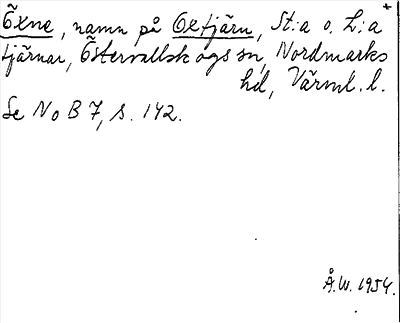 Õxne, namn på Oxtjärn, St:a o. L:a
tjärnar, Östervallskogs sn, Nordmarks
hd, Värml. l.
Se NoB 7, s. 142.
Å.W. 1954.